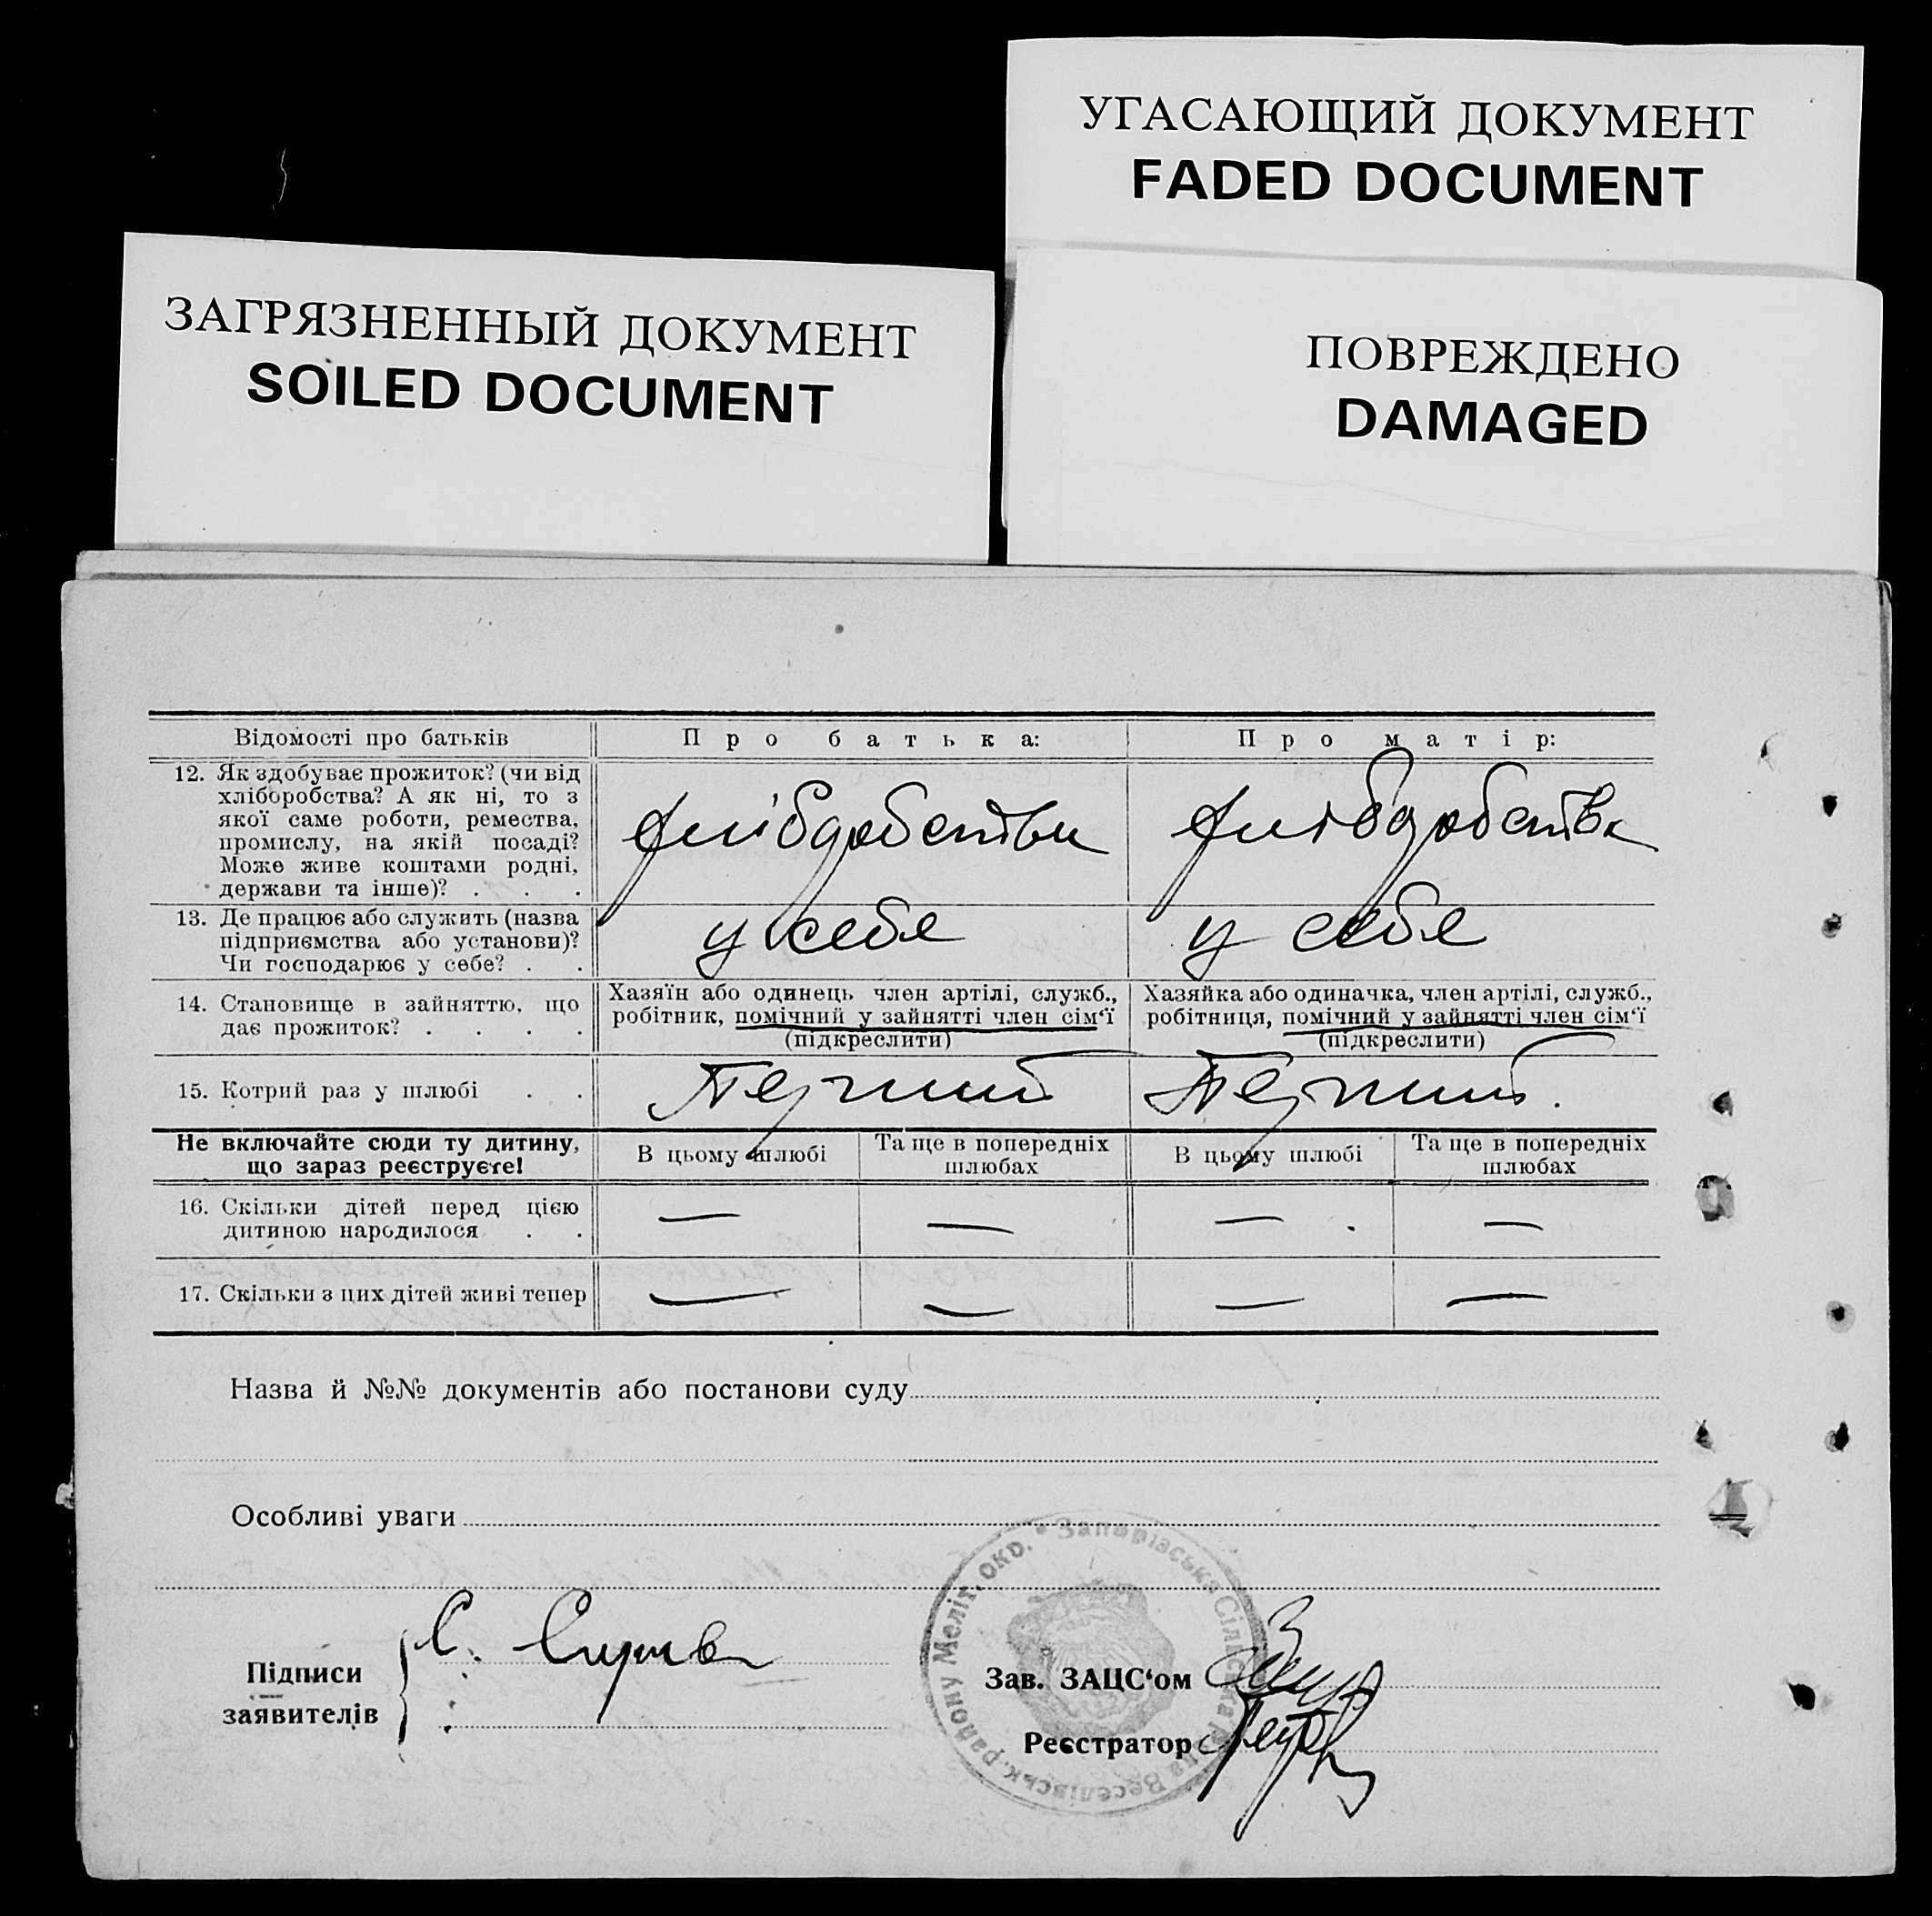 УГАСАЮЩИЙ ДОКУМЕНТ
FADED DOCUMENT
ЗАГРЯЗНЕННЫЙ ДОКУМЕНТ
SOILED DOCUMENT
ПОВРЕЖДЕНО
DAMAGED
Відомості про батьків
Про батька:
Про матір:
12. Як здобуває прожиток? (чи від
хліборобства? А як ні, то з
якої саме роботи, ремества,
промислу, на якій посаді?
Може живе коштами родні,
держави та інше)? . . .
хліборобства
хліборобства
13. Де працює або служить (назва
підприємства або установи)?
Чи господарює у себе? . .
у себе
у себе
14. Становище в зайняттю, що
дає прожиток? . . . .
Хазяїн або одинець член артілі, служб.,
робітник, помічний у зайнятті член сім‘ї
(підкреслити)
Хазяйка або одиначка, член артілі, служб.,
робітниця, помічний у зайнятті член сім‘ї
(підкреслити)
15. Котрий раз у шлюбі . .
Перший
Перший.
Не включайте сюди ту дитину,
що зараз реєструєте!
В цьому шлюбі
Та ще в попередніх
шлюбах
В цьому шлюбі
Та ще в попередніх
шлюбах
16. Скільки дітей перед цією
дитиною народилося . .
— — — —
17. Скільки з цих дітей живі тепер
— — — —
Назва й №№ документів або постанови суду
Особливі уваги
Підписи
заявителів
С.
Зав. ЗАЦС‘ом
Реєстратор
• Запорізська Сільська Рада Веселівськ. району Меліт. окр.